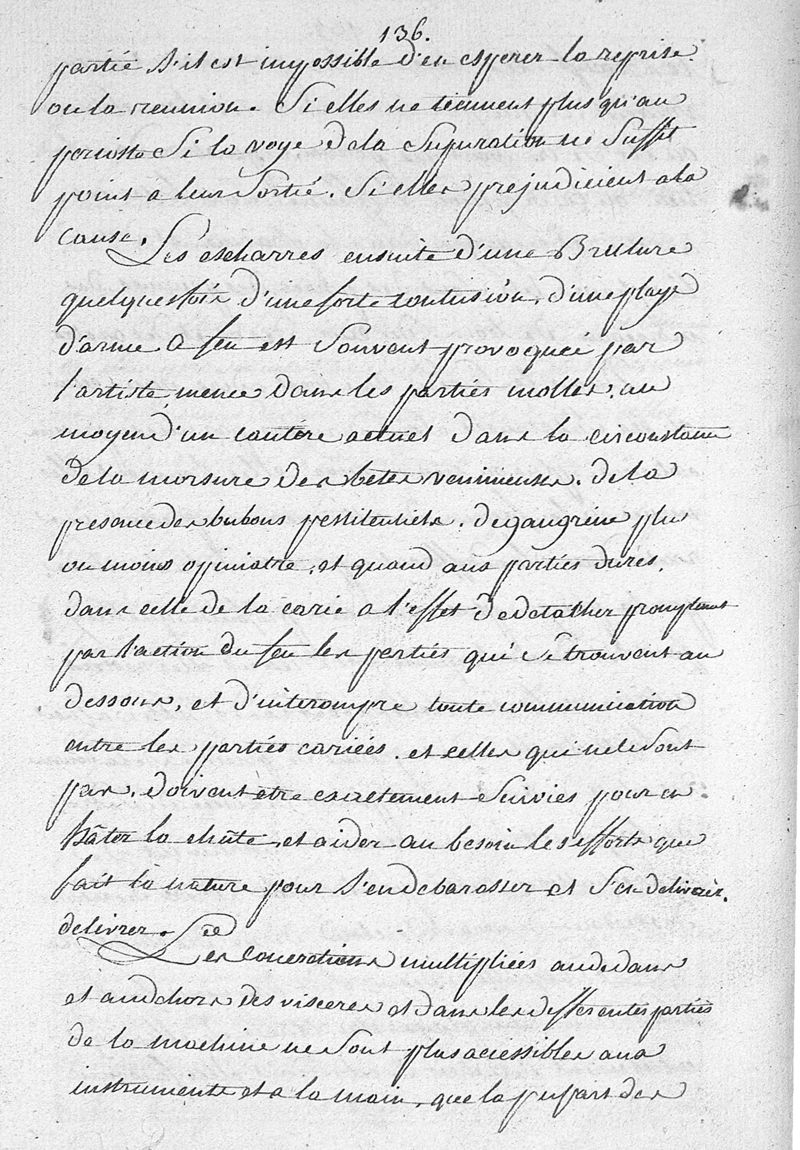 136.
partie s'il est impossible d'en esperer la reprise
ou la reunion. Si elles ne tiennent plus qu'au
perioste Si la voye de la Supuration ne Suffit
point a leur Sortie. Si elles prejudicient a la
cause.
Les escharres ensuite d'une Brulure
quelques fois d'une forte contusion, d'une playe
d'arme a feu est Souvent provoquée par
l'artiste, mence dans les parties molles, au
moyen d'un cautére actuel dans la circonstance
de la morsure des betes venimeuses. de la
presence des bubons pestitentiels. de gangrêne plus
ou moins opiniatre, et quand aux parties dures.
dans celle de la carie a l'effet de detacher promptement
par l'action du feu les parties qui Se trouvent au
dessous, et d'interompre toute communication
entre les parties cariées. et celles qui ne le Sont
pas. doivent être exactement Suivies pour en
hâter la chûte, et aider au besoin les efforts que
fait la nature pour S'en debarasser et S'en delivrer.
delivrer.
Les Concretions multipliées au dedans
et au dehors des visceres et dans les differentes parties
de la machine ne Sont plus acessibles aux
instruments et a la main, que la pluspart des